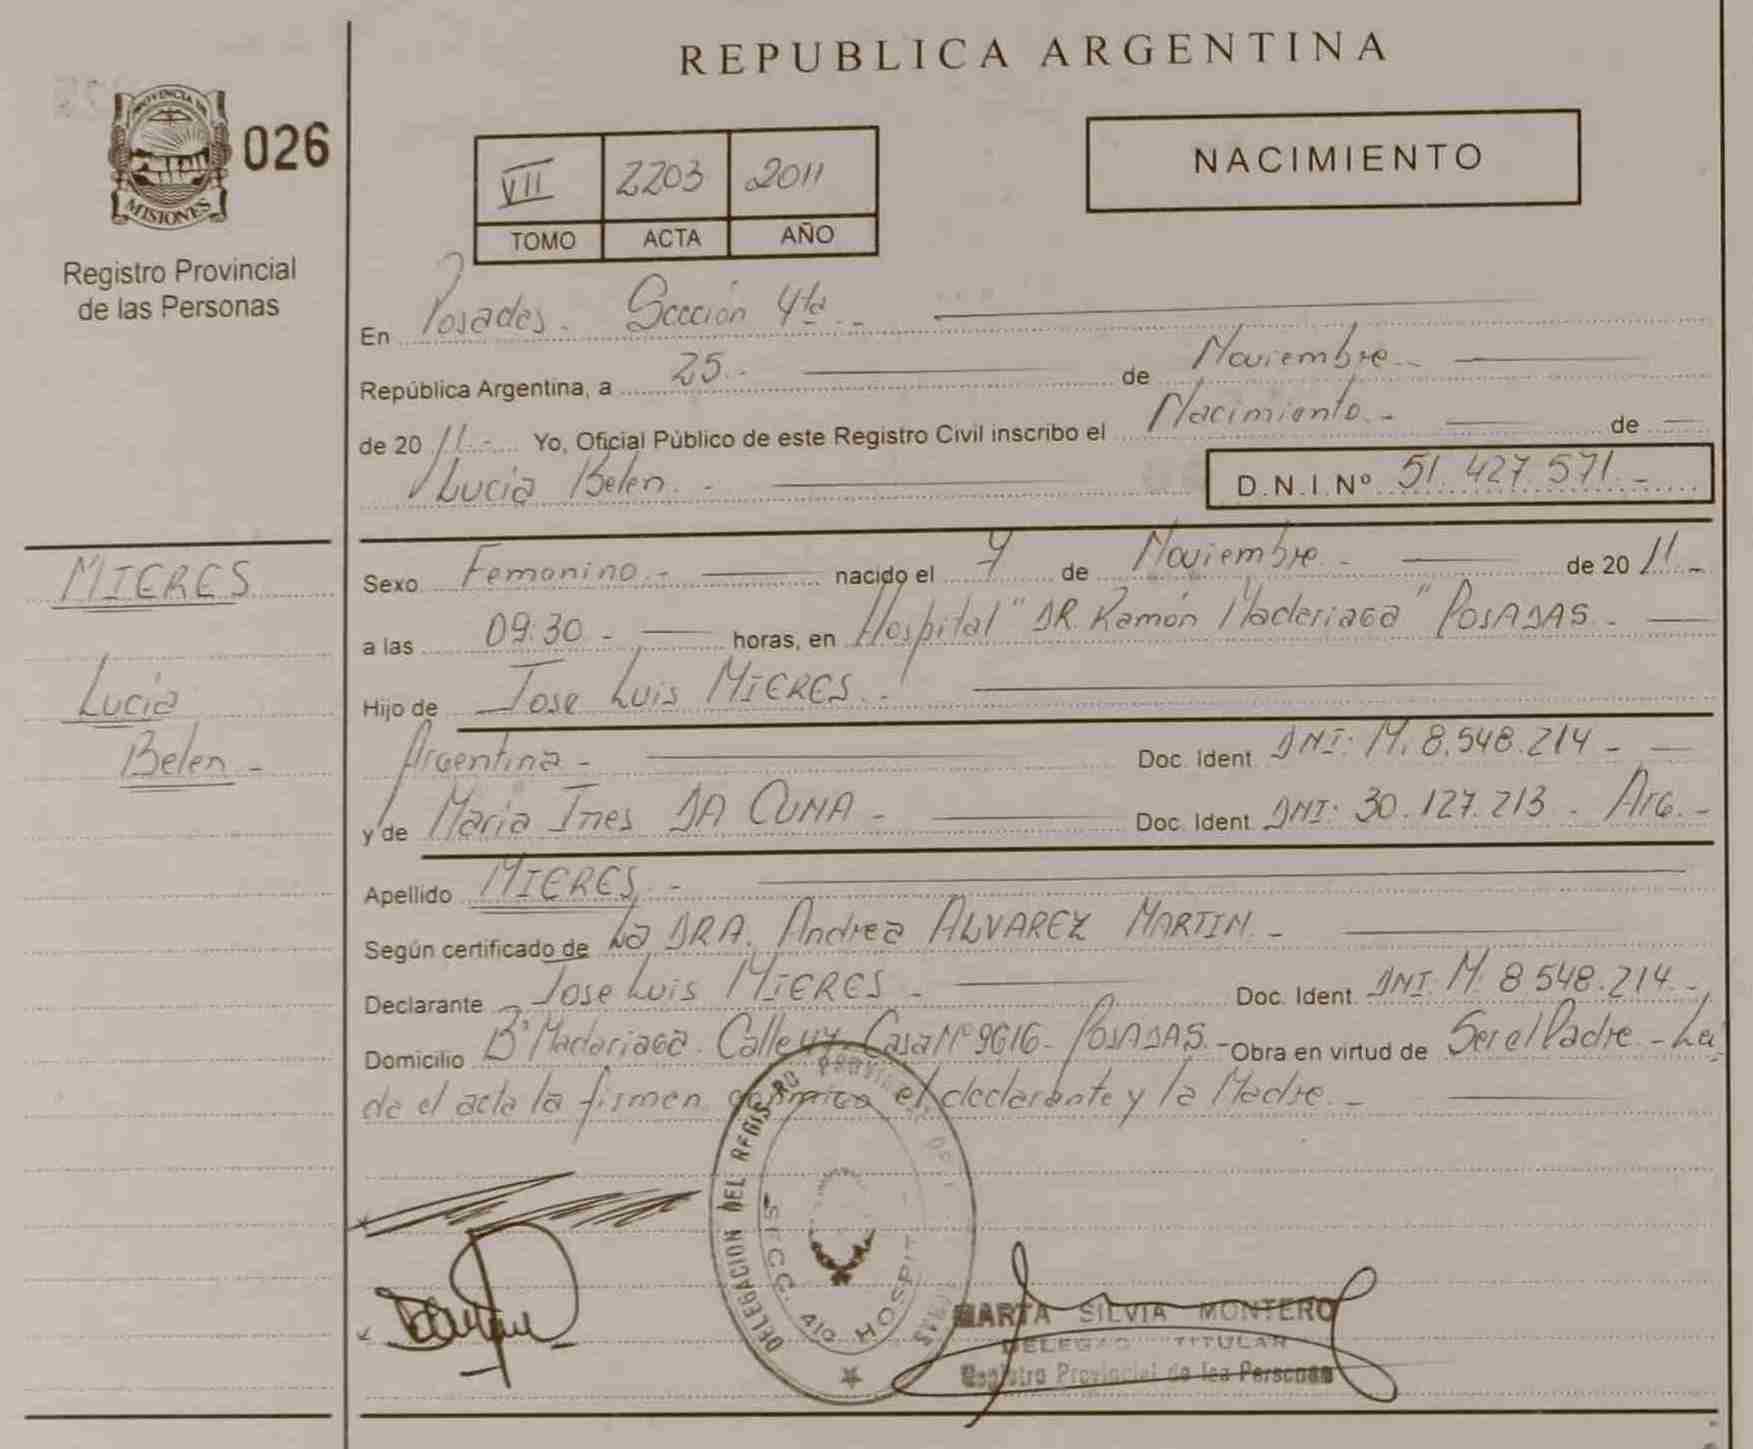 REPUBLICA ARGENTINA
PROVINCIA DE
MISIONES
026
Registro Provincial
de las Personas
VII 2203 2011
TOMO ACTA AÑO
NACIMIENTO
En Posadas. Sección 4ta.-
República Argentina, a 25.- de Noviembre.-
de 20 11.- Yo, Oficial Público de este Registro Civil inscribo el Nacimiento.- de
Lucia Belen.- D.N.I.Nº 51.427.571.-
MIERES
Lucia
Belen-
Sexo Femenino.- nacido el de Noviembre.- de 20 11.-
a las 09:30.- horas, en Hospital "DR. Ramón Maderiaga" POSADAS.-
Hijo de Jose Luis MIERES.-
Argentina- Doc. Ident. DNI: M. 8.548.214-
y de Maria Ines DA CUNA- Doc. Ident. DNI: 30.127.213- Arg.-
Apellido MIERES.-
Según certificado de La DRA. Andrea ALVAREZ MARTIN.-
Declarante Jose Luis MIERES- Doc. Ident. DNI. M. 8.548.214.-
Domicilio Bº Madariaga. Calle Casa Nº 9616- POSADAS.- Obra en virtud de Ser el Padre- Leí
de el acta la firman conmigo el declarante y la Madre.-
DELEGACION DEL REGISTRO PROVINCIAL DE
SECC. 4ta HOSPIT
MARTA SILVIA MONTERO
DELEGAD TITULAR
Registro Provincial de las Personas